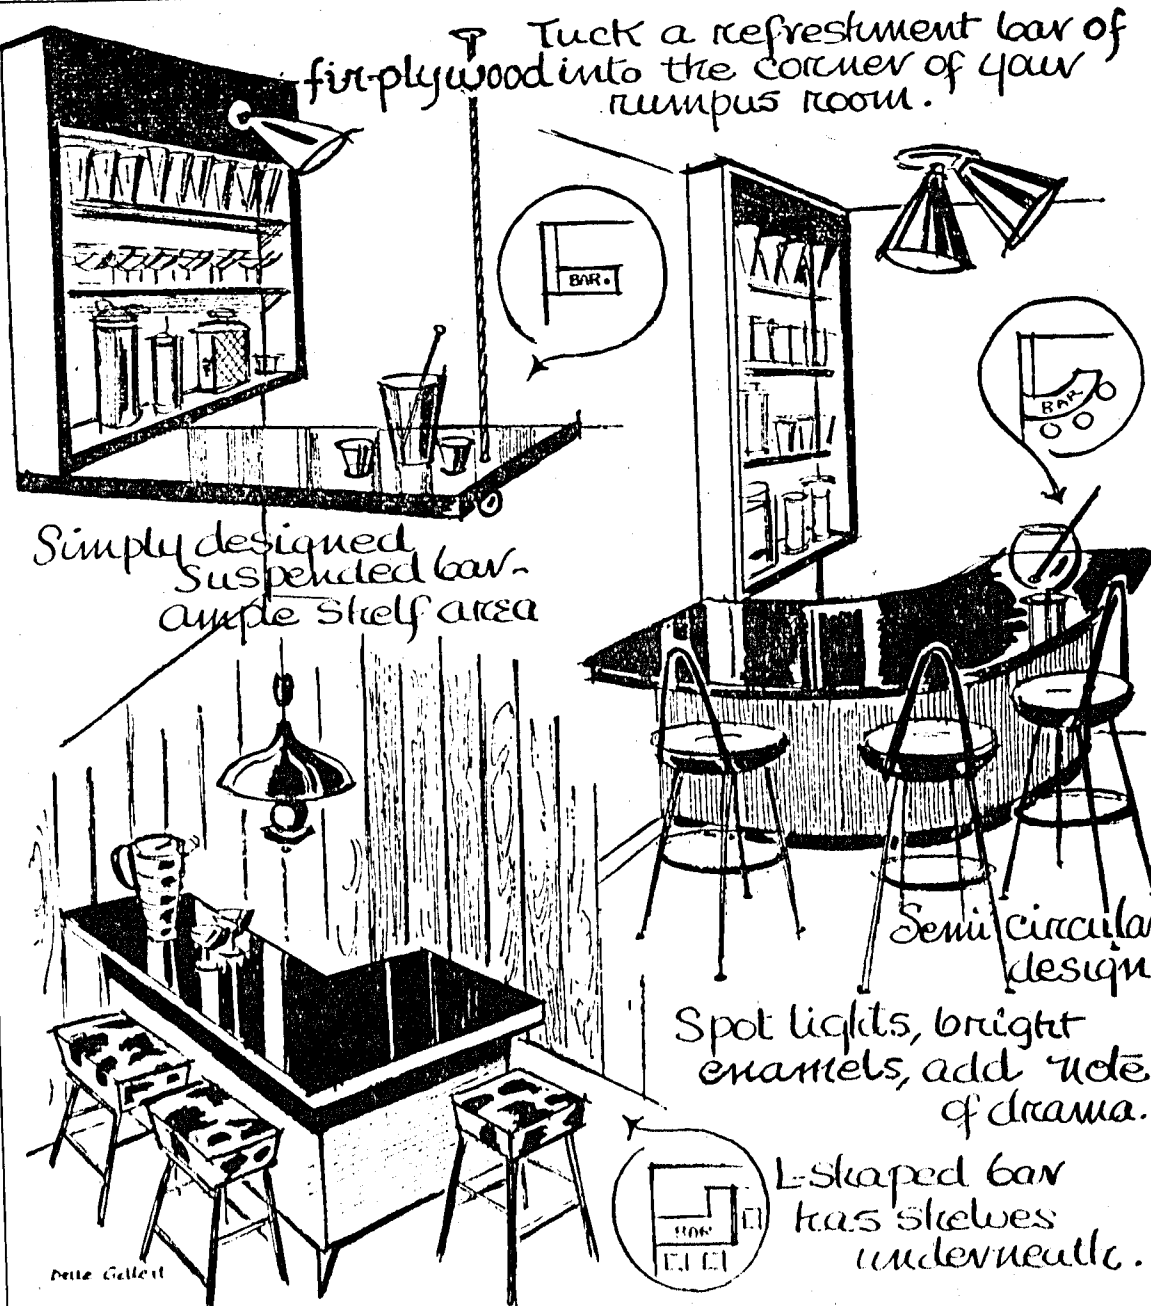 Tuck a refreshment bar of
fir-plywood into the corner of your
rumpus room.
BAR.
BAR
Simply designed
suspended bar-
ample shelf area
Semi circular
design
Spot lights, bright
enamels, add note
of drama.
L-shaped bar
has shelves
underneath.
BAR